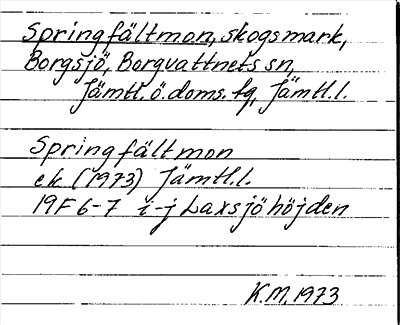 Springfältmon, skogsmark,
Borgsjö, Borgvattnets sn,
Jämtl. ö. doms. tg, Jämtl.l.
Springfältmon
ek (1973) Jämtl.l.
19F 6-7 i-j Laxsjöhöjden
K.M. 1973